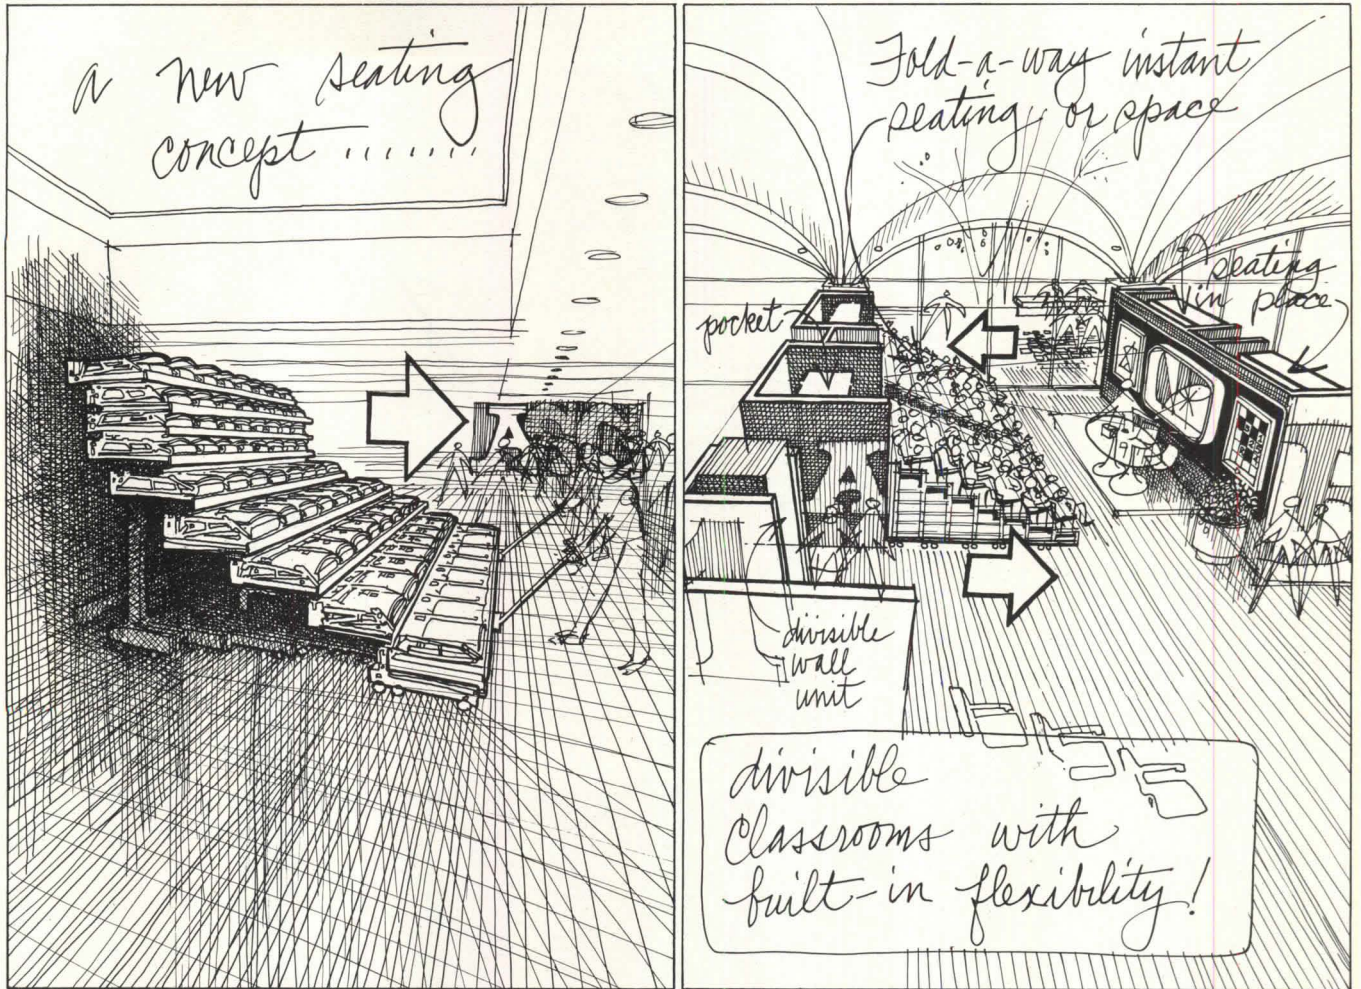 a new seating
concept .......
Fold-a-way instant
seating or space
pocket
seating
in place
A
A
divisible
wall
unit
divisible
Classrooms with
built-in flexibility!